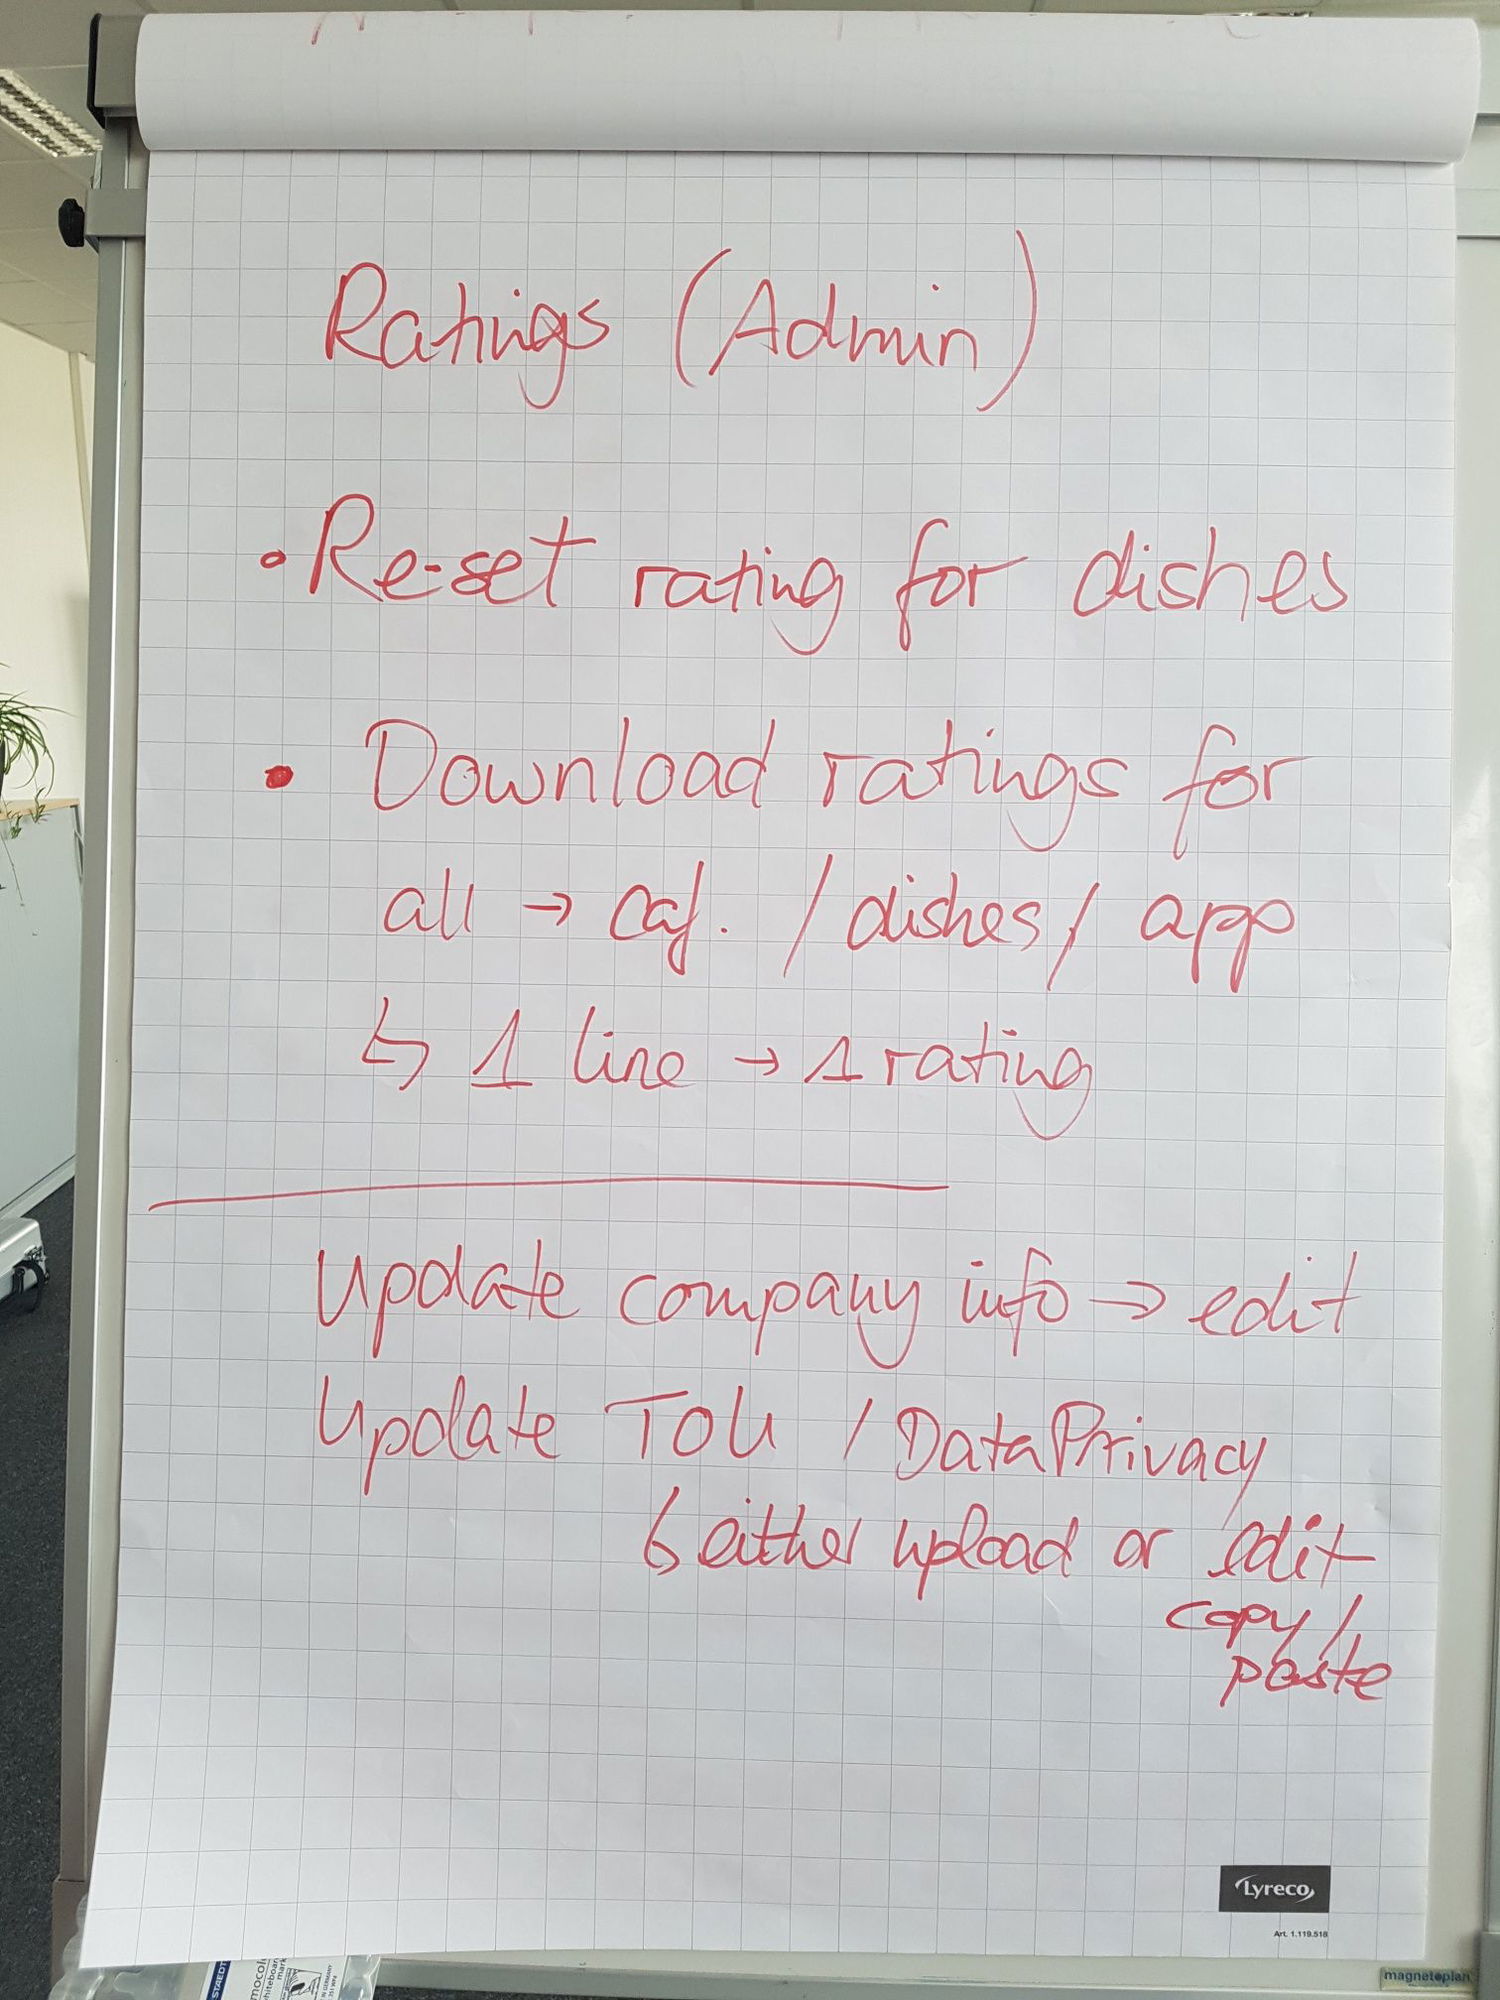 Ratings (Admin)
• Re-set rating for dishes
• Download ratings for
all → Caf. / dishes / app
↳ 1 line → 1 rating
Update company info → edit
Update TOU / Data Privacy
↳ either upload or edit
copy /
paste
Lyreco
Art. 1.119.518
magnetoplan
STAEDT
whiteboar
mark